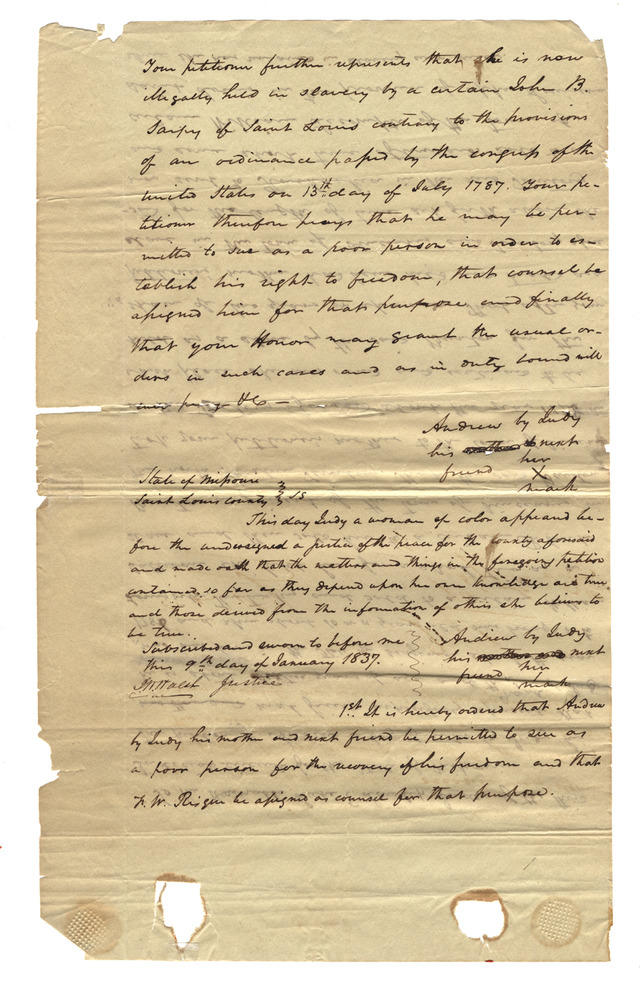 Your petitioner further represents that she is now
illegally held in slavery by a certain John B.
Sarpy of Saint Louis contrary to the provisions
of an ordinance passed by the congress of the
united States on 13th day of July 1787. Your pe-
titioner therefore prays that he may be per-
mitted to sue as a poor person in order to es-
tablish his right to freedom, that counsel be
assigned him for that purpose and finally
that your Honor may grant the usual or-
ders in such cases and as in duty bound will
ever pray &c —
Andrew by Judy
his next
friend her
X
mark
State of Missouri
Saint Louis County } SS
This day Judy a woman of color appeared be-
fore the undersigned a justice of the peace for the county aforesaid
and made oath that the matters and things in the foregoing petition
contained, so far as they depend upon her own knowledge are true
and those derived from the information of others she believes to
be true.
Subscribed and sworn to before me
this 9th day of January 1837.
Justice
Andrew by Judy
his next
friend her
mark
1st It is hereby ordered that Andrew
by Judy his mother and next friend be permitted to sue as
a poor person for the recovery of his freedom and that
F. W. Risque be assigned as counsel for that purpose.